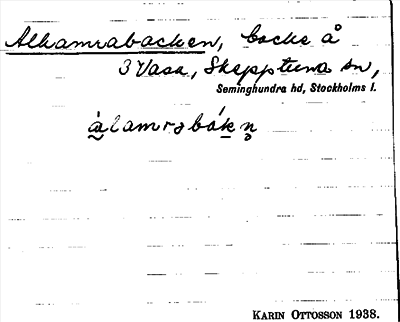 Alhamrabacken, backe å
3 Vasa, Skepptuna sn,
Seminghundra hd, Stockholms l.
àlamrəbák̲n̥
KARIN OTTOSSON 1938.